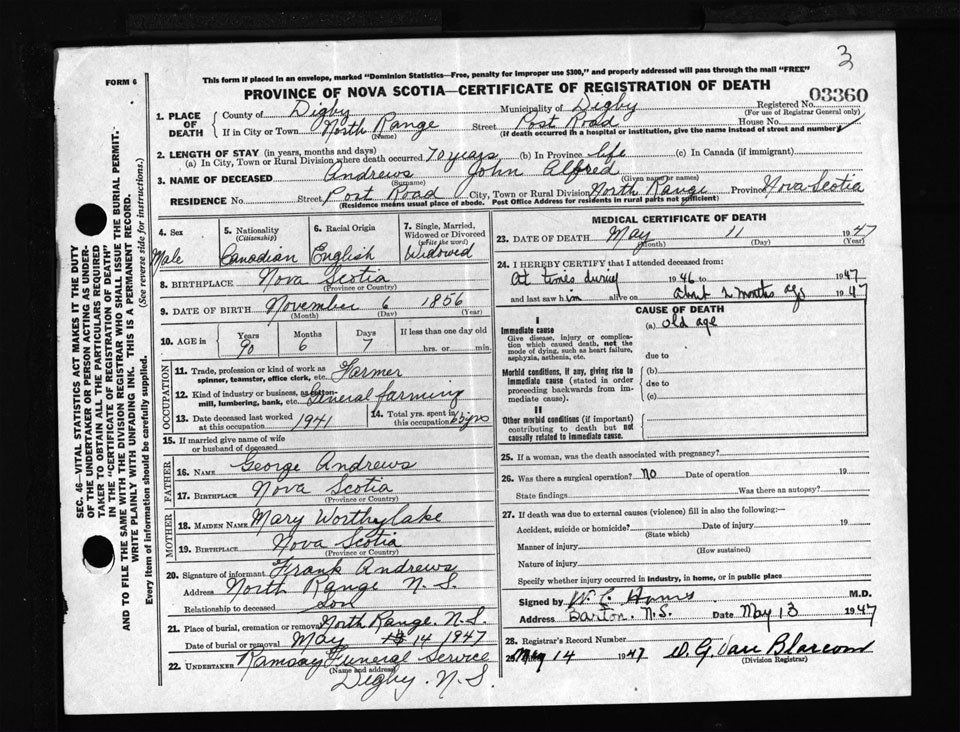 3
FORM 6
This form if placed in an envelope, marked "Dominion Statistics—Free, penalty for improper use $300," and properly addressed will pass through the mail "FREE"
PROVINCE OF NOVA SCOTIA—CERTIFICATE OF REGISTRATION OF DEATH
03360
1. PLACE OF DEATH County of Digby Municipality of Digby Registered No.
(For use of Registrar General only)
If in City or Town North Range Street Post Road House No.
(Name) (If death occurred in a hospital or institution, give the name instead of street and number)
2. LENGTH OF STAY (in years, months and days)
(a) In City, Town or Rural Division where death occurred 70 years (b) In Province life (c) In Canada (if immigrant)
3. NAME OF DECEASED Andrews John Alfred
(Surname) (Given name or names)
RESIDENCE No. Street Post Road City, Town or Rural Division North Range Province Nova Scotia
(Residence means usual place of abode. Post Office Address for residents in rural parts not sufficient)
4. Sex Male
5. Nationality (Citizenship) Canadian
6. Racial Origin English
7. Single, Married, Widowed or Divorced (write the word) Widowed
8. BIRTHPLACE Nova Scotia
(Province or Country)
9. DATE OF BIRTH November 6 1856
(Month) (Day) (Year)
10. AGE in Years 90 Months 6 Days 7 If less than one day old hrs. or min.
OCCUPATION
11. Trade, profession or kind of work as spinner, teamster, office clerk, etc. Farmer
12. Kind of industry or business, as cotton-mill, lumbering, bank, etc. General farming
13. Date deceased last worked at this occupation 1941
14. Total yrs. spent in this occupation
15. If married give name of wife or husband of deceased
FATHER
16. NAME George Andrews
17. BIRTHPLACE Nova Scotia
(Province or Country)
MOTHER
18. MAIDEN NAME Mary Worthylake
19. BIRTHPLACE Nova Scotia
(Province or Country)
20. Signature of informant Frank Andrews
Address North Range N. S.
Relationship to deceased son
21. Place of burial, cremation or removal North Range. N. S.
Date of burial or removal May 14 1947
22. UNDERTAKER Ramsay Funeral Service
(Name and address)
Digby. N. S.
MEDICAL CERTIFICATE OF DEATH
23. DATE OF DEATH May 11 1947
(Month) (Day) (Year)
24. I HEREBY CERTIFY that I attended deceased from:
At times during 1946 to 1947
and last saw him alive on about 2 months ago 1947
CAUSE OF DEATH
I
Immediate cause (a) old age
Give disease, injury or complication which caused death, not the mode of dying, such as heart failure, asphyxia, asthenia, etc.
due to
Morbid conditions, if any, giving rise to immediate cause (stated in order proceeding backwards from immediate cause).
(b)
due to
(c)
II
Other morbid conditions (if important) contributing to death but not causally related to immediate cause.
25. If a woman, was the death associated with pregnancy?
26. Was there a surgical operation? No Date of operation 19
State findings Was there an autopsy?
27. If death was due to external causes (violence) fill in also the following:—
Accident, suicide or homicide? Date of injury 19
(State which)
Manner of injury
(How sustained)
Nature of injury
Specify whether injury occurred in industry, in home, or in public place
Signed by W. E. M.D.
Address Barton. N.S. Date May 13 1947
28. Registrar's Record Number
29. May 14 1947 D. G. Van Blarcom
(Division Registrar)
SEC. 46—VITAL STATISTICS ACT MAKES IT THE DUTY
OF THE UNDERTAKER OR PERSON ACTING AS UNDERTAKER TO OBTAIN ALL THE PARTICULARS REQUIRED
IN THE "CERTIFICATE OF REGISTRATION OF DEATH"
AND TO FILE THE SAME WITH THE DIVISION REGISTRAR WHO SHALL ISSUE THE BURIAL PERMIT.
WRITE PLAINLY WITH UNFADING INK. THIS IS A PERMANENT RECORD.
Every item of information should be carefully supplied. (See reverse side for instructions.)